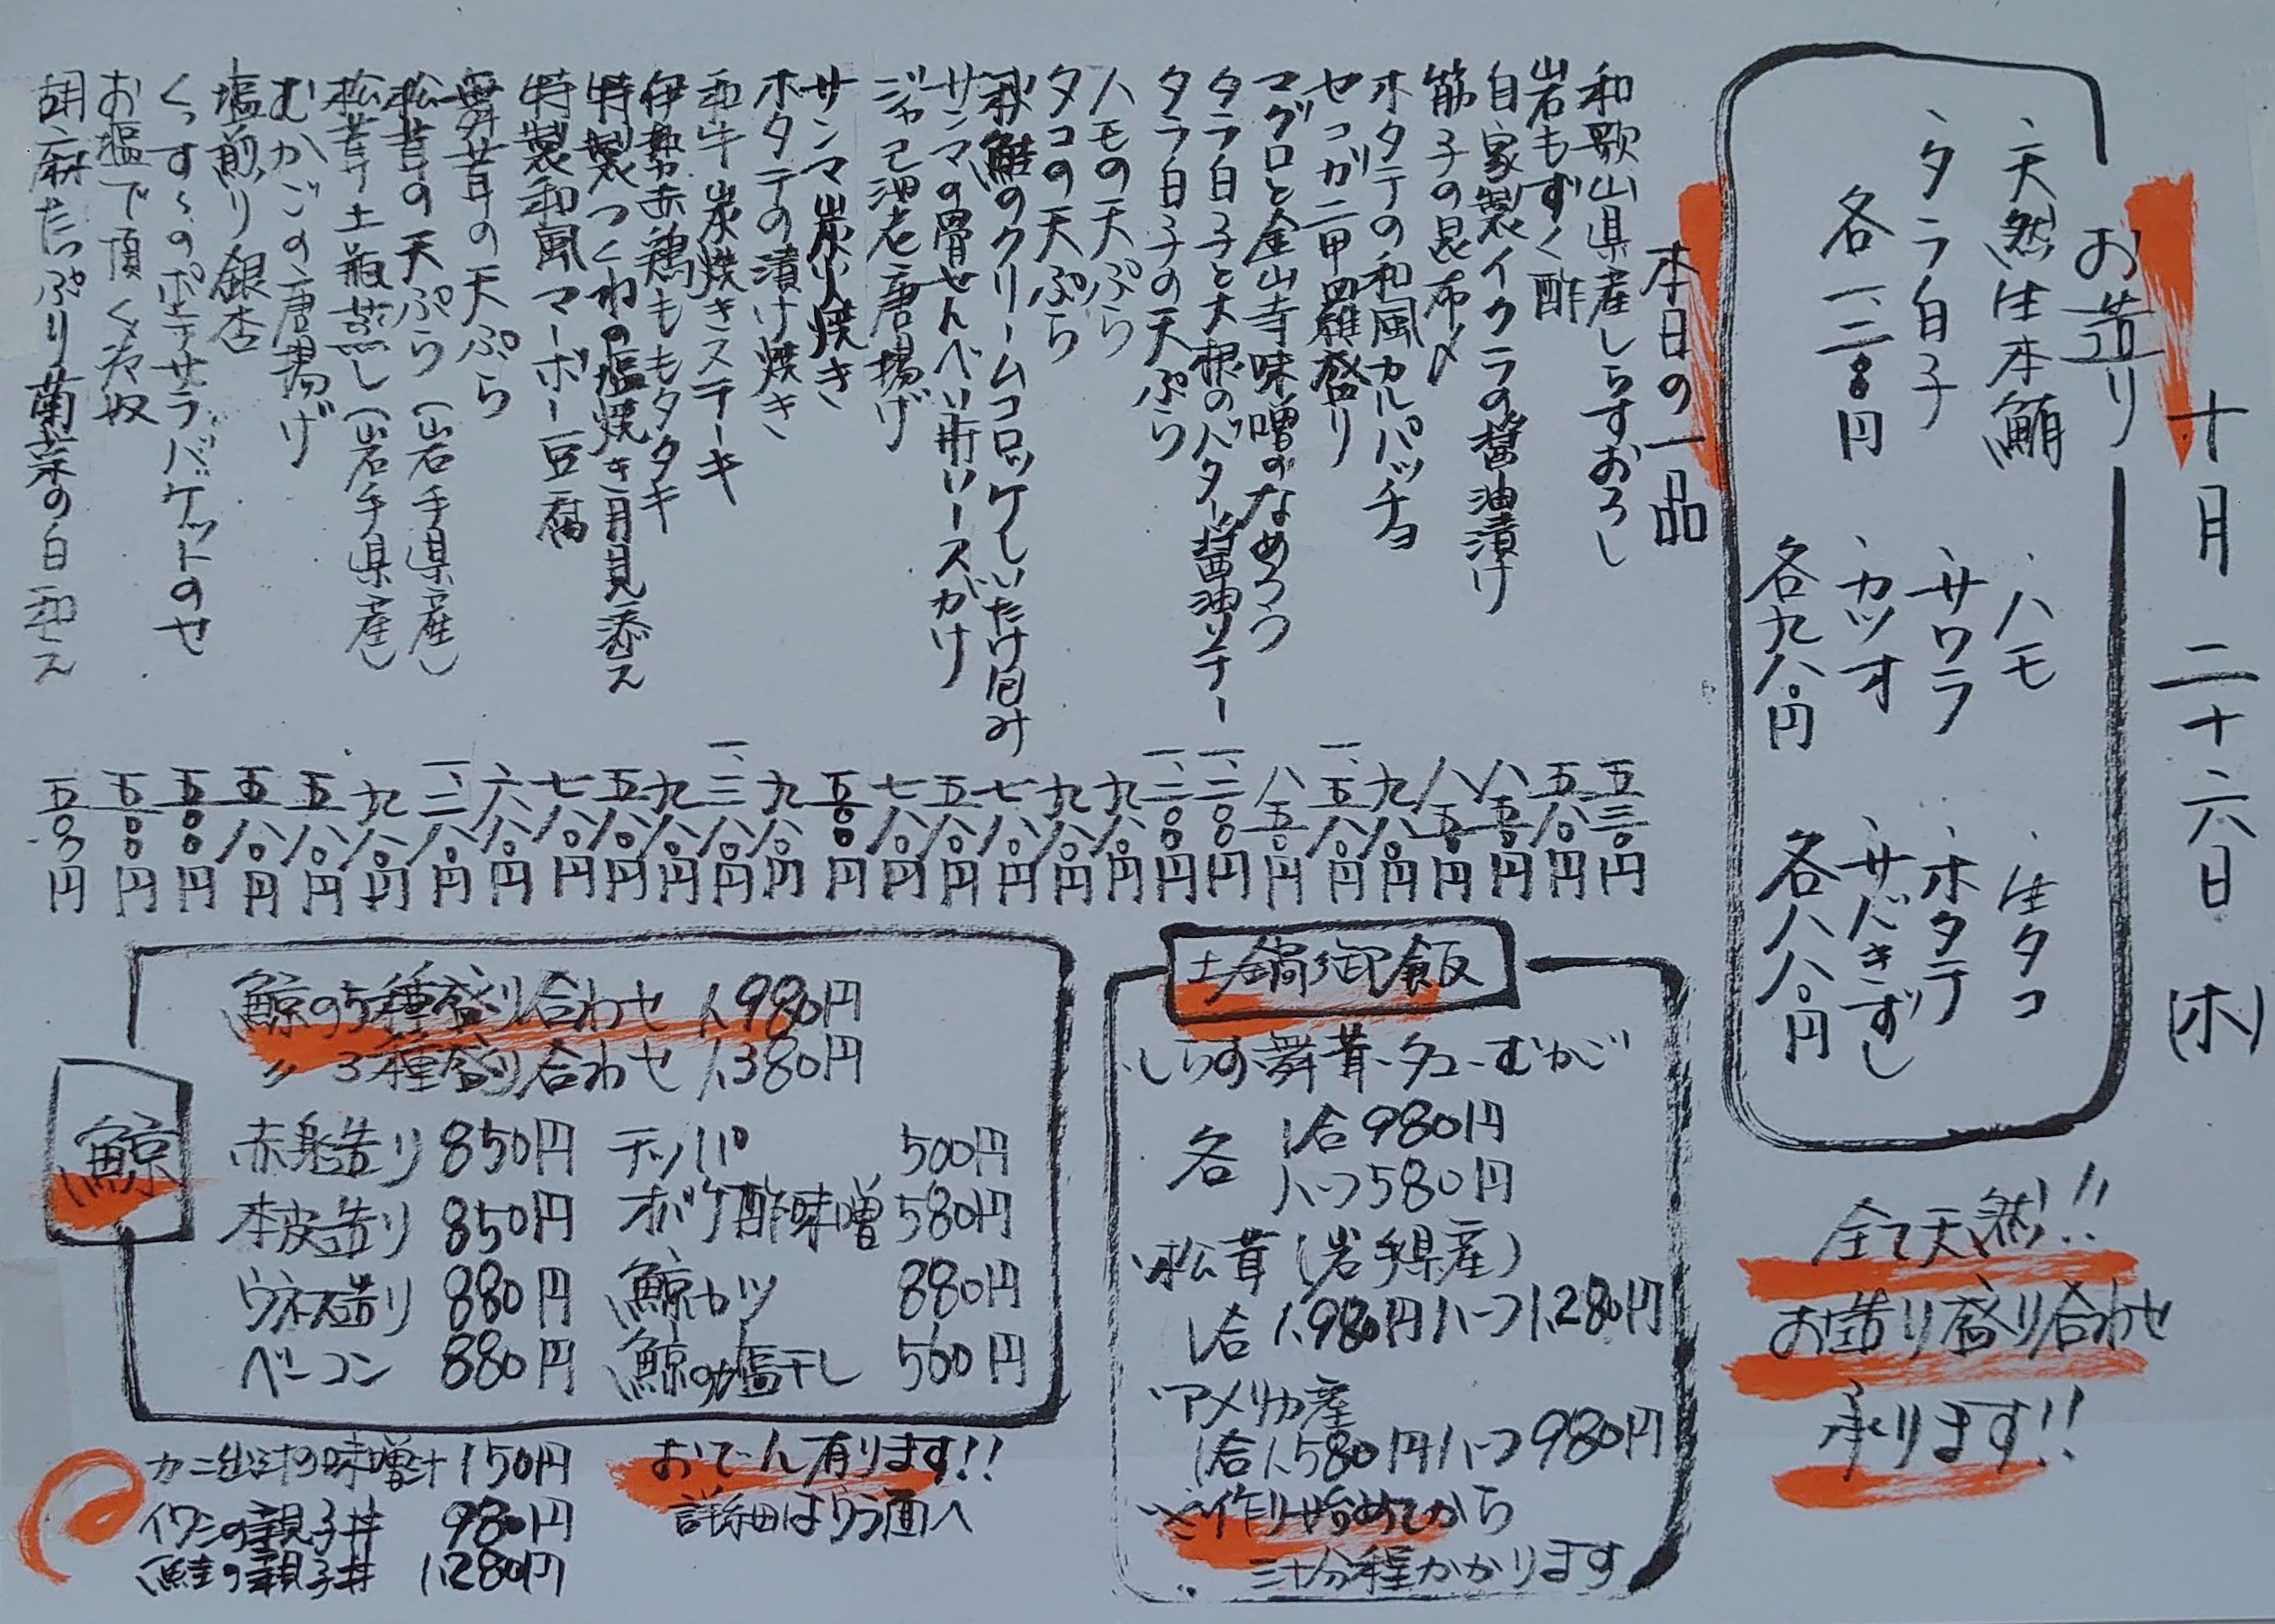 十月二十六日(木)
お造り
・天然生本鮪
・タラ白子
各一、二八〇円
・ハモ
・サワラ
・カツオ
各九八〇円
・生タコ
・ホタテ
・サバきずし
各八八〇円
全て天然!!
お造り盛り合わせ
承ります!!
本日の一品
和歌山県産しらすおろし 五三〇円
岩もずく酢 五八〇円
自家製イクラの醤油漬け 八五〇円
筋子の昆布〆 八五〇円
ホタテの和風カルパッチョ 九八〇円
セコガニ甲羅盛り 一、五八〇円
マグロと金山寺味噌のなめろう 八五〇円
タラ白子と大根のバター醤油ソテー 一、二〇〇円
タラ白子の天ぷら 一、二〇〇円
ハモの天ぷら 九八〇円
タコの天ぷら 九八〇円
秋鮭のクリームコロッケしいたけ包み 七八〇円
サンマの骨せんべい南蛮ソースがけ 五八〇円
ジャコ池老唐揚げ 七八〇円
サンマ炭火焼き 五〇〇円
ホタテの漬け焼き 九八〇円
和牛炭焼きステーキ 一、三八〇円
伊勢赤鶏ももタタキ 九八〇円
特製つくねの塩焼き月見添え 五八〇円
特製和風マーボー豆腐 七八〇円
舞茸の天ぷら 六八〇円
松茸の天ぷら(岩手県産) 二、二八〇円
松茸土瓶蒸し(岩手県産) 九八〇円
むかごの唐揚げ 五八〇円
塩煎り銀杏 五八〇円
くっすぅのポテサラバケットのせ 五〇〇円
お塩で頂く冷奴 五〇〇円
胡麻たっぷり菊菜の白和え 五〇〇円
土鍋御飯
・しらす・舞茸・タコ・むかご
各 1合980円
ハーフ580円
・松茸(岩手県産)
1合1,980円ハーフ1,280円
・アメリカ産
1合1,580円ハーフ980円
※作り始めてから
三十分程かかります
鯨
鯨の5種盛り合わせ 1,980円
〃 3種盛り合わせ 1,380円
赤身造り 850円 テッパ 500円
本皮造り 850円 オバケ酢味噌 580円
ウネス造り 880円 鯨カツ 880円
ベーコン 880円 鯨の塩干し 500円
カニ出汁の味噌汁 150円
イワシの親子丼 980円
鮭の親子丼 1,280円
おでん有ります!!
詳細はウラ面へ